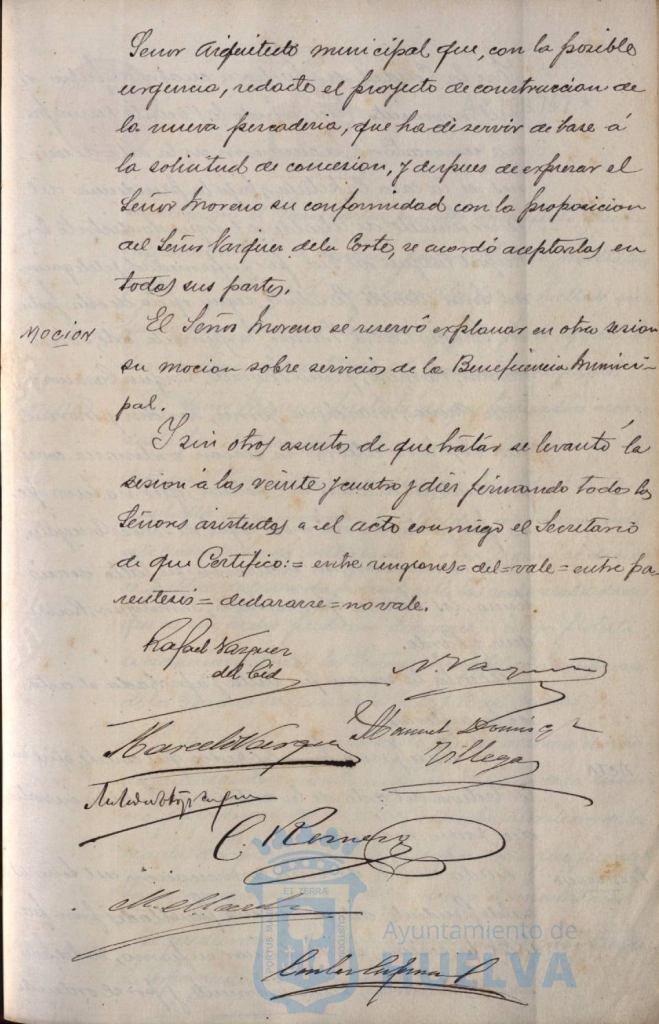 Señor Arquitecto municipal que, con la posible
urgencia, redacte el proyecto de construccion de
la nueva pescaderia, que ha de servir de base á
la solicitud de concesion, y despues de expresar el
Señor Moreno su conformidad con la proposicion
del Señor Vazquez de la Corte, se acordó aceptarlas en
todas sus partes.
Mocion
El Señor Moreno se reservó explanar en otra sesion
su mocion sobre servicios de la Beneficencia Munici-
pal.
Y sin otros asuntos de que tratar se levantó la
sesion á las veinte y cuatro y diez firmando todos los
Señores asistentes a el acto conmigo el Secretario
de que Certifico:= entre renglones= del=vale= entre pa-
rentesis= declararse=no vale.
Rafael Vazquez
del Cid
N. Vazquez
Marcelo Vazquez
Manuel Doming
Villega
C. Romero
ET TERRÆ
PORTUS MARIS
CUSTODIA
Ayuntamiento de
HUELVA